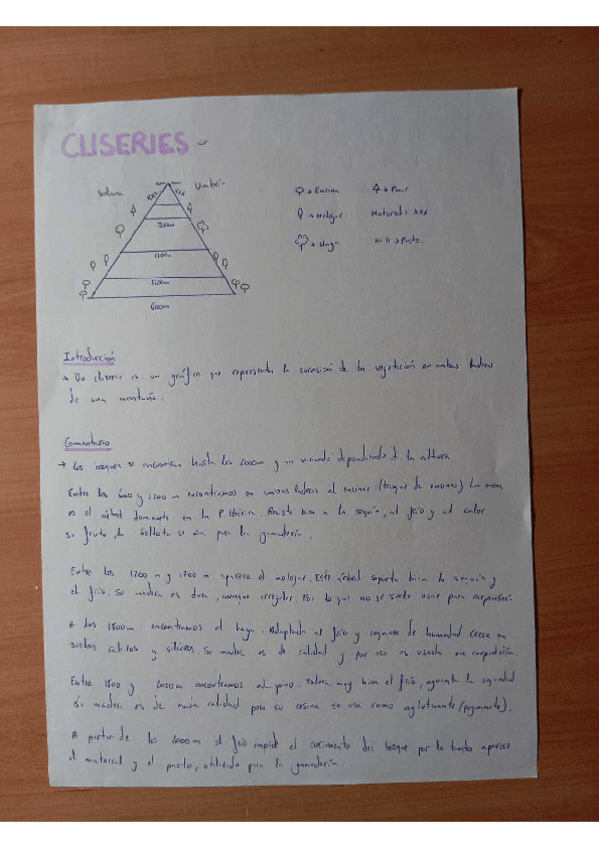 CLISERIES
Solana Umbría
XXX XXX
2000m
1700m
1200m
600m
→ Encina → Pino
→ Melojar Matorral: XXX
→ Haya → Pasto.
Introducción
→ Un cliserie es un gráfico que representa la sucesión de la vegetación en ambas laderas
de una montaña.
Comentario
→ Los bosques se encuentran hasta los 2000m y van variando dependiendo de la altura
Entre los 600 y 1200 m encontramos en ambas laderas el encinar (bosque de encinas) La encina
es el árbol dominante en la P. Ibérica. Resiste bien a la sequía, al frío y al calor
su fruto, la bellota se usa para la ganadería.
Entre los 1200 m y 1700 m aparece el melojar. Este árbol soporta bien la sequía y
el frío. Su madera es dura, aunque irregular. Por lo que no se suele usar para carpintería
A los 1800m encontramos el haya. Adaptada al frío y requiere de humedad crece en
suelos calizos y silíceos. Su madera es de calidad y por eso es usada en carpintería
Entre 1800 y 2000m encontramos el pino. Tolera muy bien el frío, aguanta la sequedad
Su madera es de mala calidad pero su resina se usa como aglutinante (pegamento).
A partir de los 2000m el frío impide el crecimiento del bosque por lo tanto aparece
el matorral y el pasto, utilizado para la ganadería.